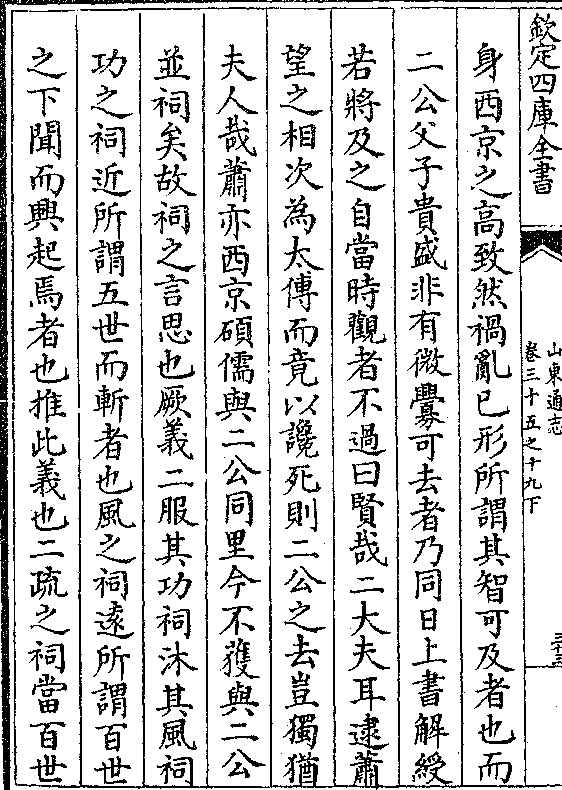 欽定四庫全書
山東通志
卷三十五之十九下
三十三
身西京之高致然禍亂已形所謂其智可及者也而
二公父子貴盛非有微釁可去者乃同日上書解綬
若將及之自當時觀者不過曰賢哉二大夫耳逮蕭
望之相次為太傅而竟以讒死則二公之去豈獨猶
夫人哉蕭亦西京碩儒與二公同里今不獲與二公
並祠矣故祠之言思也厥義二服其功祠沐其風祠
功之祠近所謂五世而斬者也風之祠遠所謂百世
之下聞而興起焉者也推此義也二疏之祠當百世